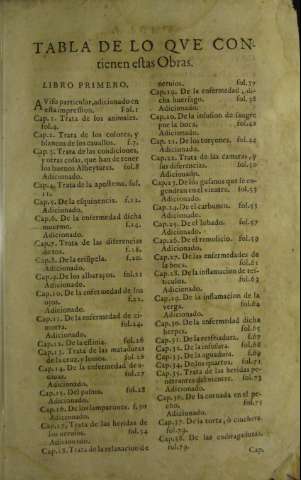 TABLA DE LO QVE CON-
tienen estas Obras.
LIBRO PRIMERO.
AViso particular, adicionado en
esta impression. Fol.1
Cap.1. Trata de los animales.
fol.4.
Cap.2. Trata de los colores, y
blancos de los cauallos. f.7.
Cap.3. Trata de las condiciones,
y otras cosas, que han de tener
los buenos Albeytares. fol.8
Adicionado.
Cap.4. Trata de la apostema. fol.
11.
Cap.5. De la esquinencia. f.12.
Adicionado.
Cap.6. De la enfermedad dicha
muermo. f.14.
Adicionado.
Cap.7. Trata de las diferencias
de tos. f.18.
Cap.8. De la erisipela. f.20.
Adicionado.
Cap.9. De los albarazos. fol.21
Adicionado.
Cap.10. De la enfermedad de los
ojos. f.22.
Adicionado.
Cap.11. De la enfermedad de ci-
morra. fol.24.
Adicionado.
Cap.12. De la
Cap.13. Trata de las mataduras
de la cruz, y lomos. fol.26
Cap.14. De la enfermedad de
fol.27
Adicionado.
Cap.15. Del pulmon. fol.28
Adicionado.
Cap.16. De los lamparones. f.30
Adicionado.
Cap.17. Trata de las heridas de
los neruios. fol.34
Adicionado.
Cap.18. Trata de la relaxacion de
neruios. fol.37
Cap.19. De la enfermedad, di-
cha huerfago. fol.38
Adicionado.
Cap.20. De la infusion de sangre
por la boca. fol.42
Adicionado.
Cap.21. De los torçones. fol.44
Adicionado.
Cap.22. Trata de las camaras, y
sus diferencias. fol.50
Adicionado.
Cap.23. De los gusanos que se en-
gendran en el vientre. fol.53
Adicionado.
Cap.24. Del carbunco. fol.55
Adicionado.
Cap.25. De el lobado. fol.57
Adicionado.
Cap.26. De el remolicio. fol.59
Adicionado.
Cap.27. De las enfermedades de
la boca. fol.61
Cap.28. De la inflamacion de tes-
ticulos. fol.63
Adicionado.
Cap.29. De la inflamacion de la
verga. fol.64
Adicionado.
Cap.30. De la enfermedad dicha
herpes. fol.65
Cap.31. De la resfriadura. fol.67
Cap.32. De la infosura. fol.68
Cap.33. De la aguadura. fol.69
Cap.34. De los quartos. fol.71
Cap.35. Trata de las heridas pe-
netrantes del vientre. fol.73
Adicionado.
Cap.36. De la cornada en el pe-
cho. fol.75
Adicionado.
Cap.37. De la torta, ò
fol.79.
Cap.38. De las
fol.79.
Cap.